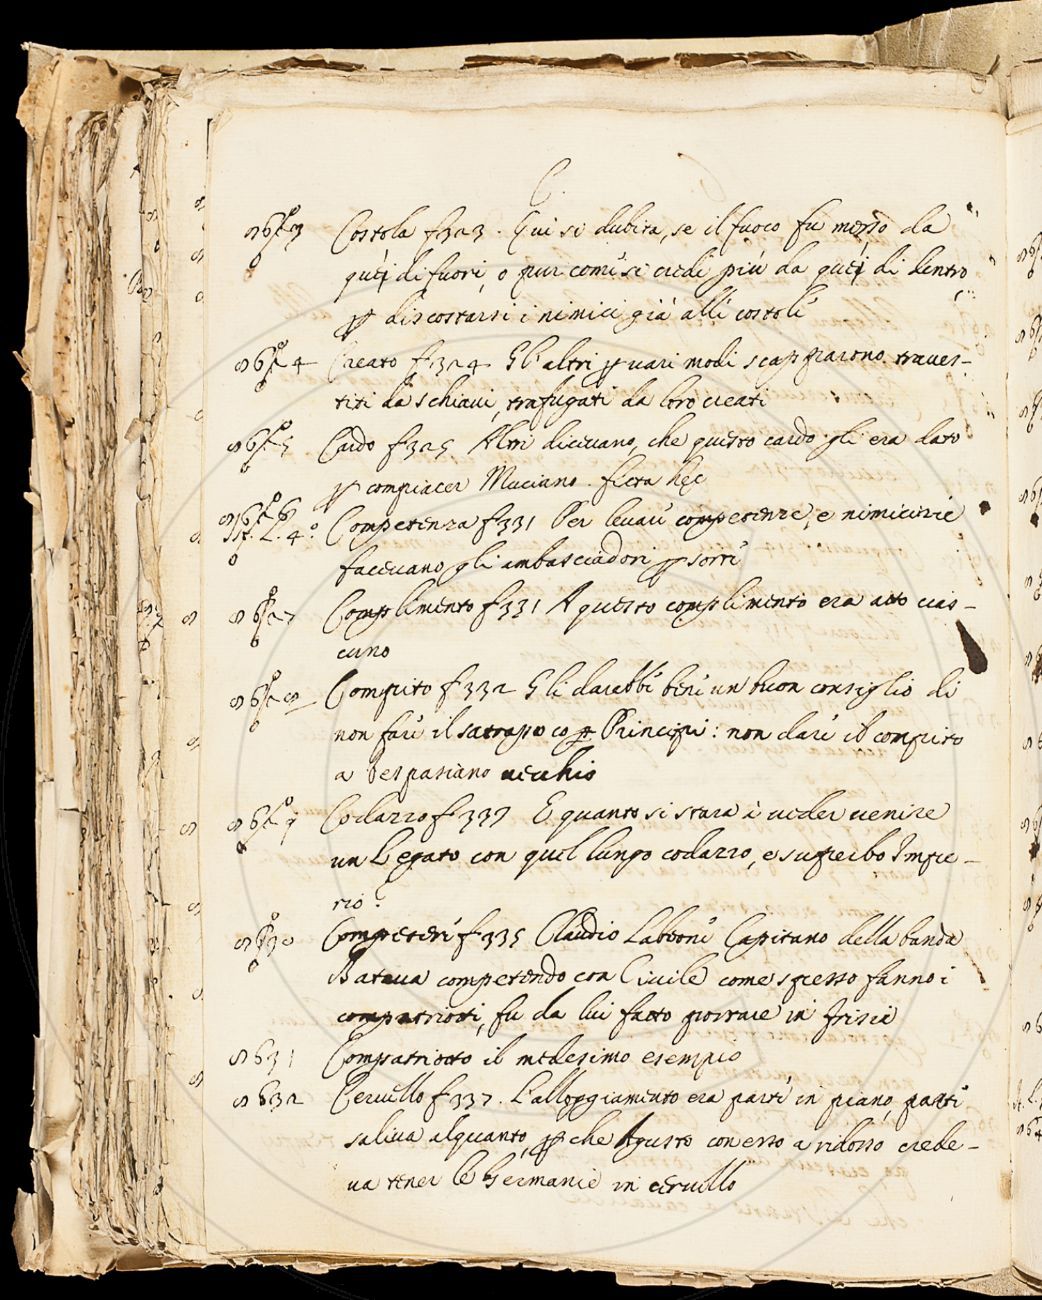 C.
8623 Costola f 323. Qui si dubita, se il fuoco fu messo da
quei di fuori, o pur come si crede più da quei di dentro,
p discostarsi i nimici già alle costole
8624 Creato f 324 Gl'altri p uari modi scapparono. traues-
titi da schiaui, trafugati da loro creati
8625 Cardo f 325 Altri diceuano, che questo cardo gli era dato
p compiacer Muciano. ficta hęc
8626 Competenza f 331 Per leuare competenze, e nimicizie
Ist. L. 4.° faceuano gli ambasciadori p sorte
8627 Complimento f 331 A questo complimento era atto cias-
cuno
8628 Compito f 332 Gli darebbe bene un buon consiglio di
non fare il satrapo co Principi: non dare il compito
a Vespasiano uecchio
8629 Codazzo f 333 E quanto si starà à ueder uenire
un Legato con quel lungo codazzo, e superbo Impe-
rio?
8630 Competere f 335 Claudio Labeone Capitano della banda
Bataua competendo con Ciuile come spesso fanno i
compatriotti, fu da lui fatto portare in frisia
8631 Compatriotto il medesimo esempio
8632 Ceruello f 337. L'alloggiamento era parte in piano, parte
saliua alquanto, p che Agusto con esso a ridosso crede-
ua tener le Germanie in ceruello